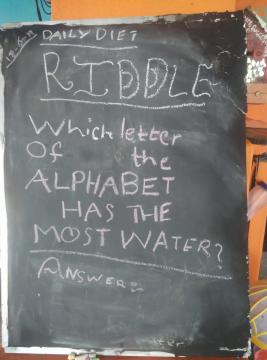 DAILY DIET
RIDDLE
Which letter
Of the
ALPHABET
HAS THE
MOST WATER?
ANSWER:-